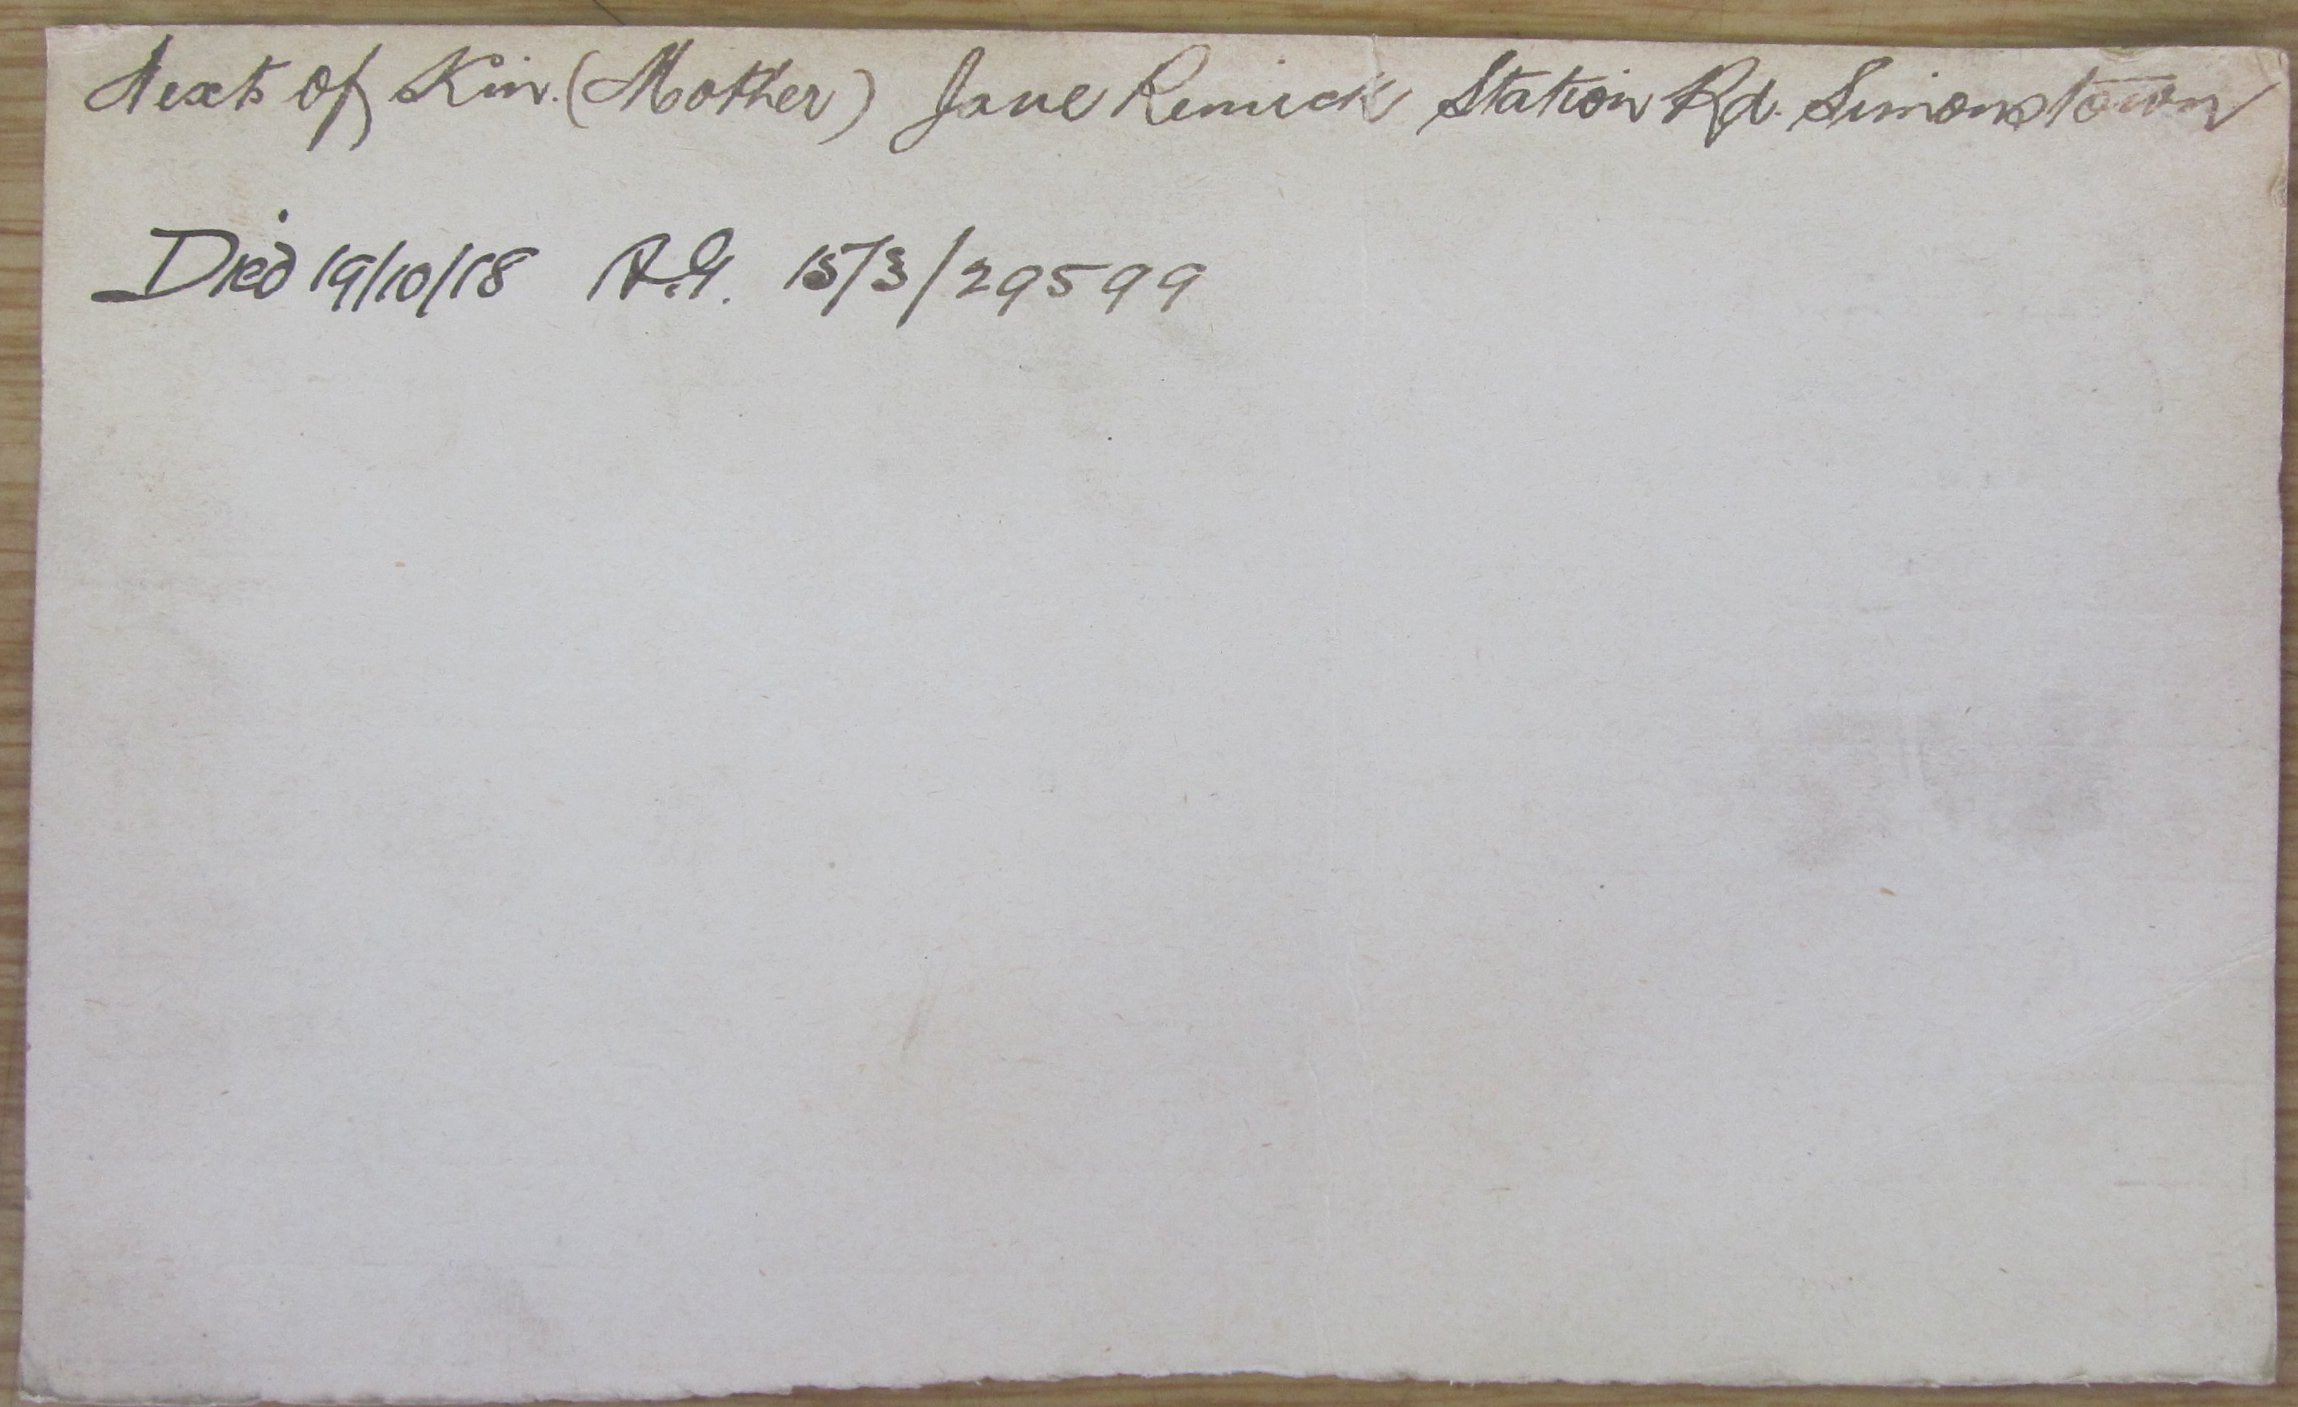 Next of Kin. (Mother) Jane Renick Station Rd. Simonstown
Died 19/10/18 A.G. 15/3/29599